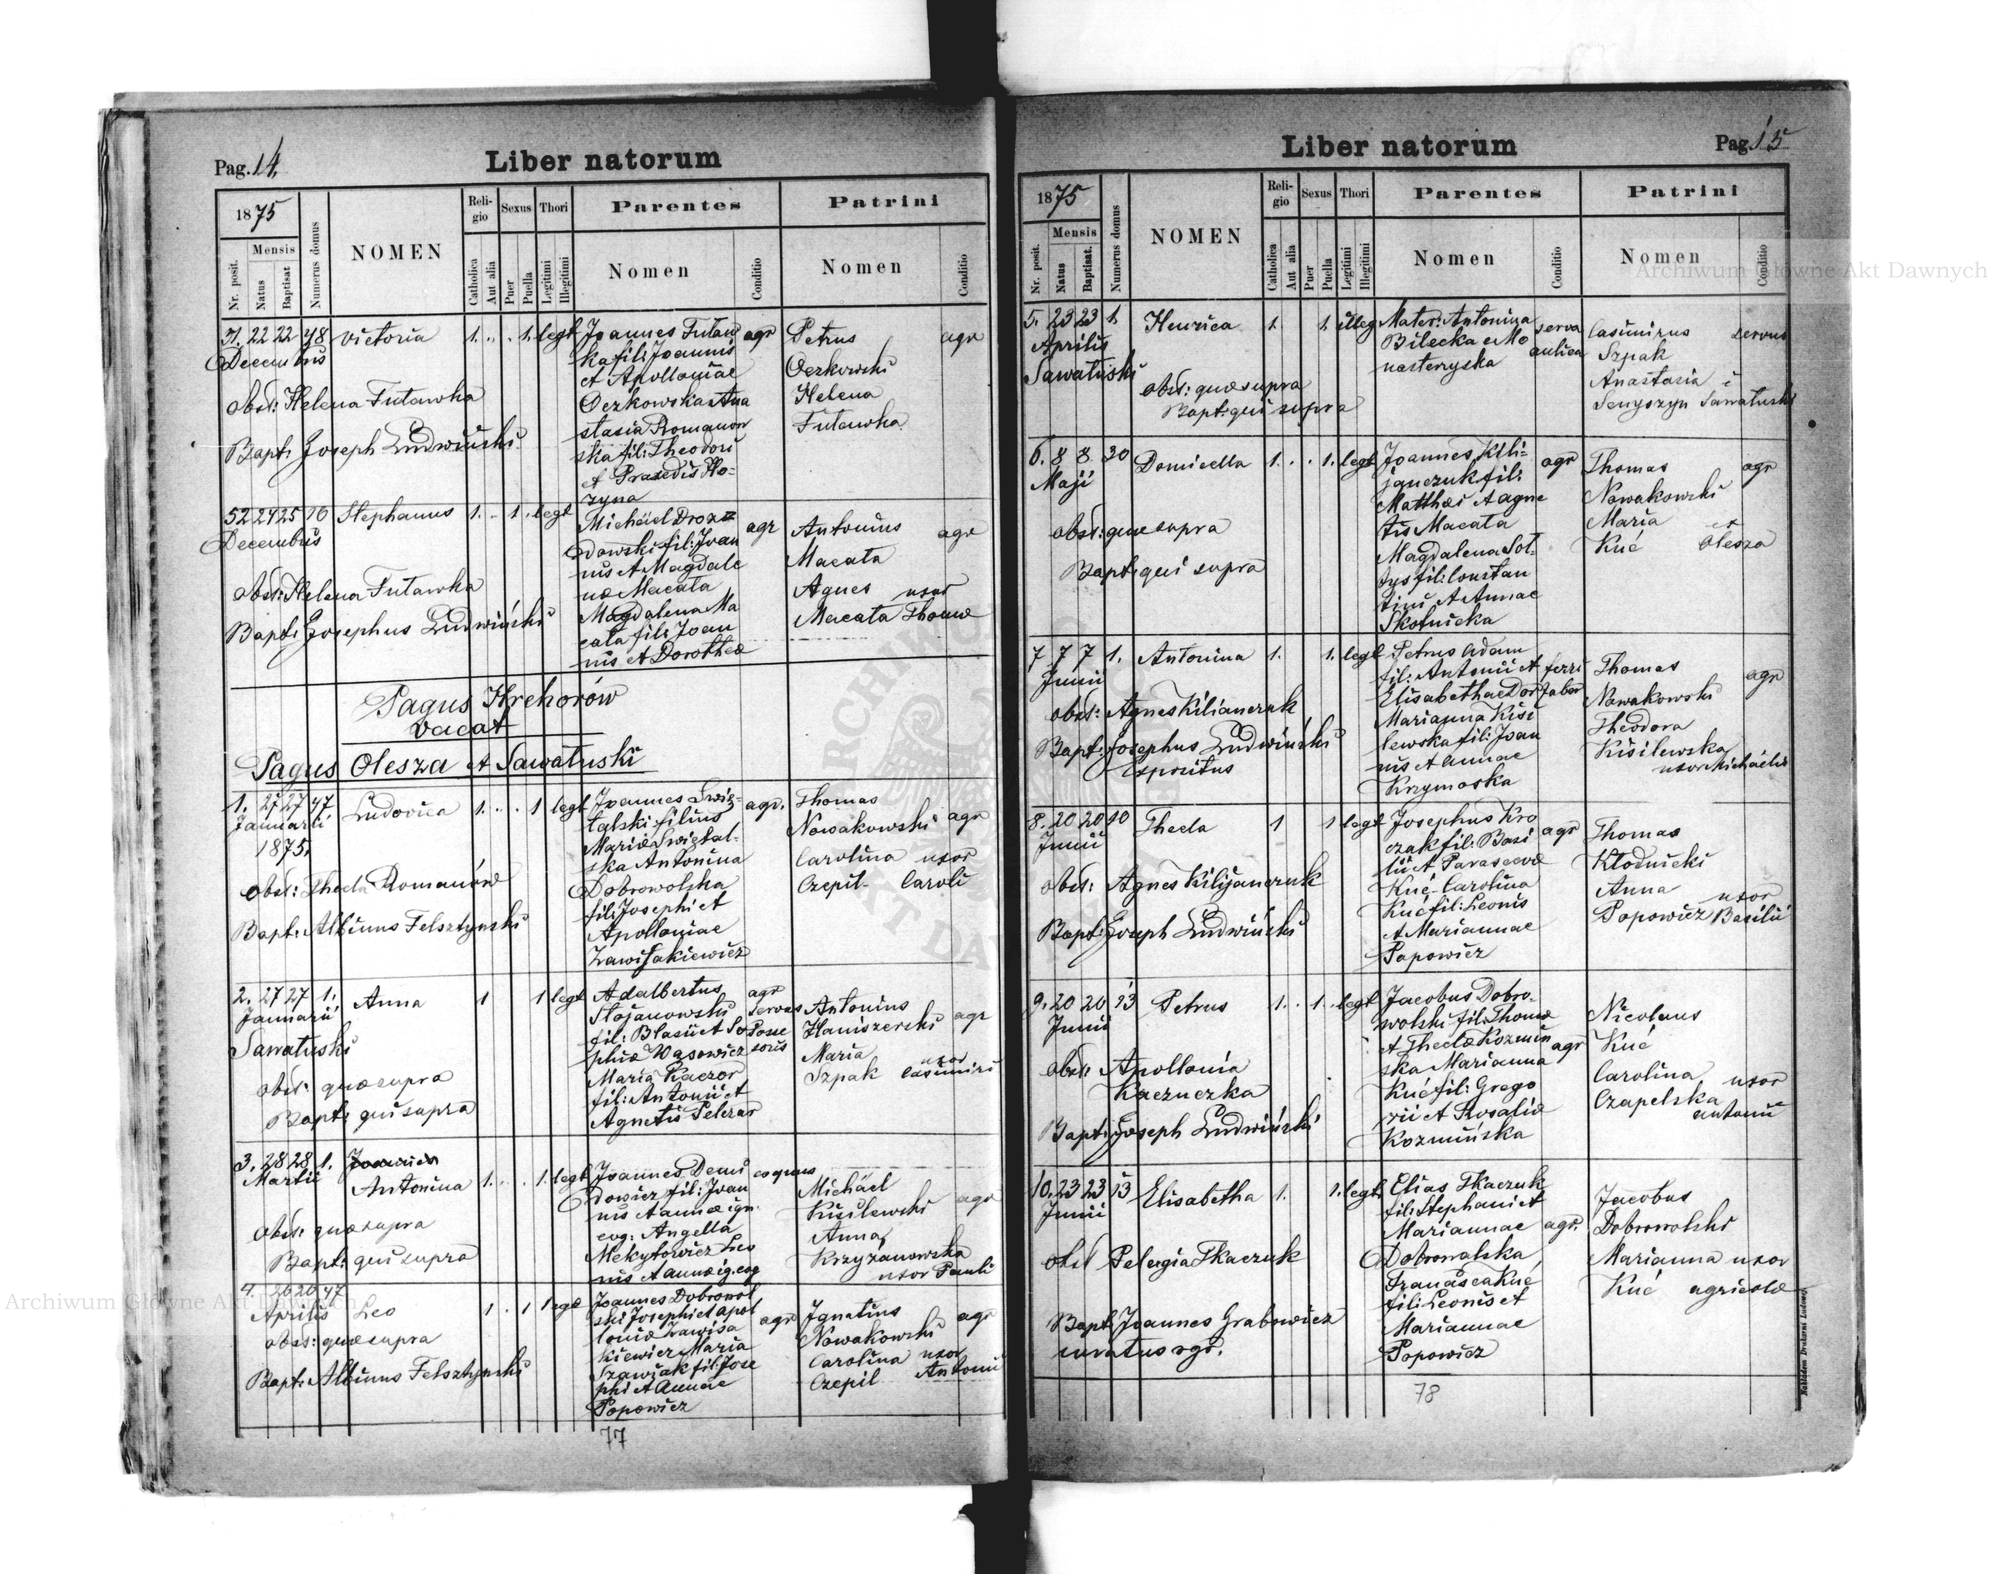 Pag. 14.
Liber natorum
1875
Mensis
Nr. posit.
Natus
Baptisat
Numerus domus
NOMEN
Religio
Catholica
Aut alia
Sexus
Puer
Puella
Thori
Legitimi
Illegitimi
Parentes
Nomen
Conditio
Patrini
Nomen
Conditio
22 22 48 Victoria 1. 1. legt
Decembris
Joannes Futaw agr
ka fil: Joannis
et Apolloniae
Oczkowska Ana
stasia Romanow
ska fil: Theodori
et Praxedis
Petrus agr
Oczkowski
Helena
Futawka
Obst: Helena Futawka
Bapt: Joseph Ludwiński
52 24 25 10 Stephanus 1. 1. legt
Decembris
Michäel Droz agr
dowski fil: Joan
nis et Magdale
nae Macata
Magdalena Ma
cata fil: Joan
nis et Dorotheae
Antonius agr
Macata
Agnes uxor
Macata Thomae
Obst: Helena Futawka
Bapt: Josephus Ludwiński
Pagus Hrehorów
Vacat
Pagus Olesza et Sawatuski
1. 27 27 47 Ludovica 1. 1 legt
Januarii
1875.
Joannes Świę- agr.
talski filius
Mariae Świętal-
ska Antonina
Dobrowolska
fil: Josephi et
Apolloniae
Zawisakiewicz
Thomas
Nowakowski agr
Carolina uxor
Czepil Caroli
Obst: Thecla Romanów
Bapt: Albinus Felsztynski
2. 27 27 1. Anna 1 1 legt
Januarii
Sawatuski
Adalbertus agr
Stojanowski servus
fil: Blasii et So Posse
phiae Wąsowicz soris
Maria Kaczor
fil: Antonii et
Agnetis Pelczar
Antonius
Haniszerski agr
Maria uxor
Szpak Casimiri
Obst: quae supra
Bapt: qui supra
3. 28 28 1.
Martii Antonina 1. 1. legt
Joannes Demi coquus
dowicz fil: Joan
nis et annae ign.
cog: Angella
Mekytowicz Leo
nis et annae ig. cog
Michäel
Kisilewski agr
Anna
Krzyzanowska
uxor Pauli
Obst: quae supra
Bapt: qui supra
4. 20 20 47
Aprilis Leo 1 1 legt
Joannes Dobrowol
ski Josephi et apol
loniae Zawisa agr
kiewicz Maria
Szawiak fil: Jose
phi et Annae
Popowicz
Ignatius agr
Nowakowski
Carolina uxor
Czepil Antonii
Obst: quae supra
Bapt: Albinus Felsztynski
77
Pag. 15
Liber natorum
1875
Mensis
Nr. posit.
Natus
Baptisat.
Numerus domus
NOMEN
Religio
Catholica
Aut alia
Sexus
Puer
Puella
Thori
Legitimi
Illegitimi
Parentes
Nomen
Conditio
Patrini
Nomen
Conditio
5. 23 23 1. Henrica 1. 1. illeg
Aprilis
Sawatuski
Mater: Antonina serva
Bilecka e Mo aulica
nasterzyska
Casimirus servus
Szpak
Anastasia e
Senyszyn Sawatuski
Obst: quae supra
Bapt: qui supra
6. 8 8 20 Domicella 1. 1. legt
Maji
Joannes Kili- agr
janczuk fil:
Matthei et agne
tis Macata
Magdalena Sot-
tys fil: Constan
tini et Annae
Skotnicka
Thomas agr
Nowakowski
Maria ex
Kuć Olesza
Obst: quae supra
Bapt: qui supra
7 7 7 1. Antonina 1. 1. legt
Junii
Petrus Adam
fil: Antonii et ferri
Elisabethae Dor faber
Marianna Kisi
lewska fil: Joan
nis et annae
Krzymoska
Thomas agr
Nowakowski
Theodora
Kisilewska
uxor Michäelis
Obst: Agnes Kilianczuk
Bapt: Josephus Ludwiński
Expositus
8. 20 20 10 Thecla 1 1 legt
Junii
Josephus Kro agr
czak fil: Basi
lii et Parascevae
Kuć- Carolina
Kuć fil: Leonis
et Mariannae
Popowicz
Thomas
Kłodnicki
Anna uxor
Popowicz Basilii
Obst: Agnes Kilijanczuk
Bapt: Joseph Ludwiński
9. 20 20 13 Petrus 1. 1. legt
Junii
Jacobus Dobro-
wolski fil: Thomae
et Theclae Kozmin agr
ska Marianna
Kuć fil: Grego
rii et Rosaliae
Kozmińska
Nicolaus
Kuć
Carolina uxor
Czapelska
antonii
Obst: Apollonia
Kaczuczka
Bapt: Joseph Ludwiński
10. 23 23 13 Elisabetha 1. 1. legt
Junii
Elias Tkaczuk
fil: Stephani et
Mariannae agr.
Dobrowalska
Francisca Kuć
fil: Leonis et
Mariannae
Popowicz
Jacobus
Dobrowolski
Marianna uxor
Kuć agricolae
Obst Pelagia Tkaczuk
Bapt: Joannes Grabowicz
curatus
78
Nakładem Drukarni Ludowej
Archiwum Główne Akt Dawnych
Archiwum Główne Akt Dawnych